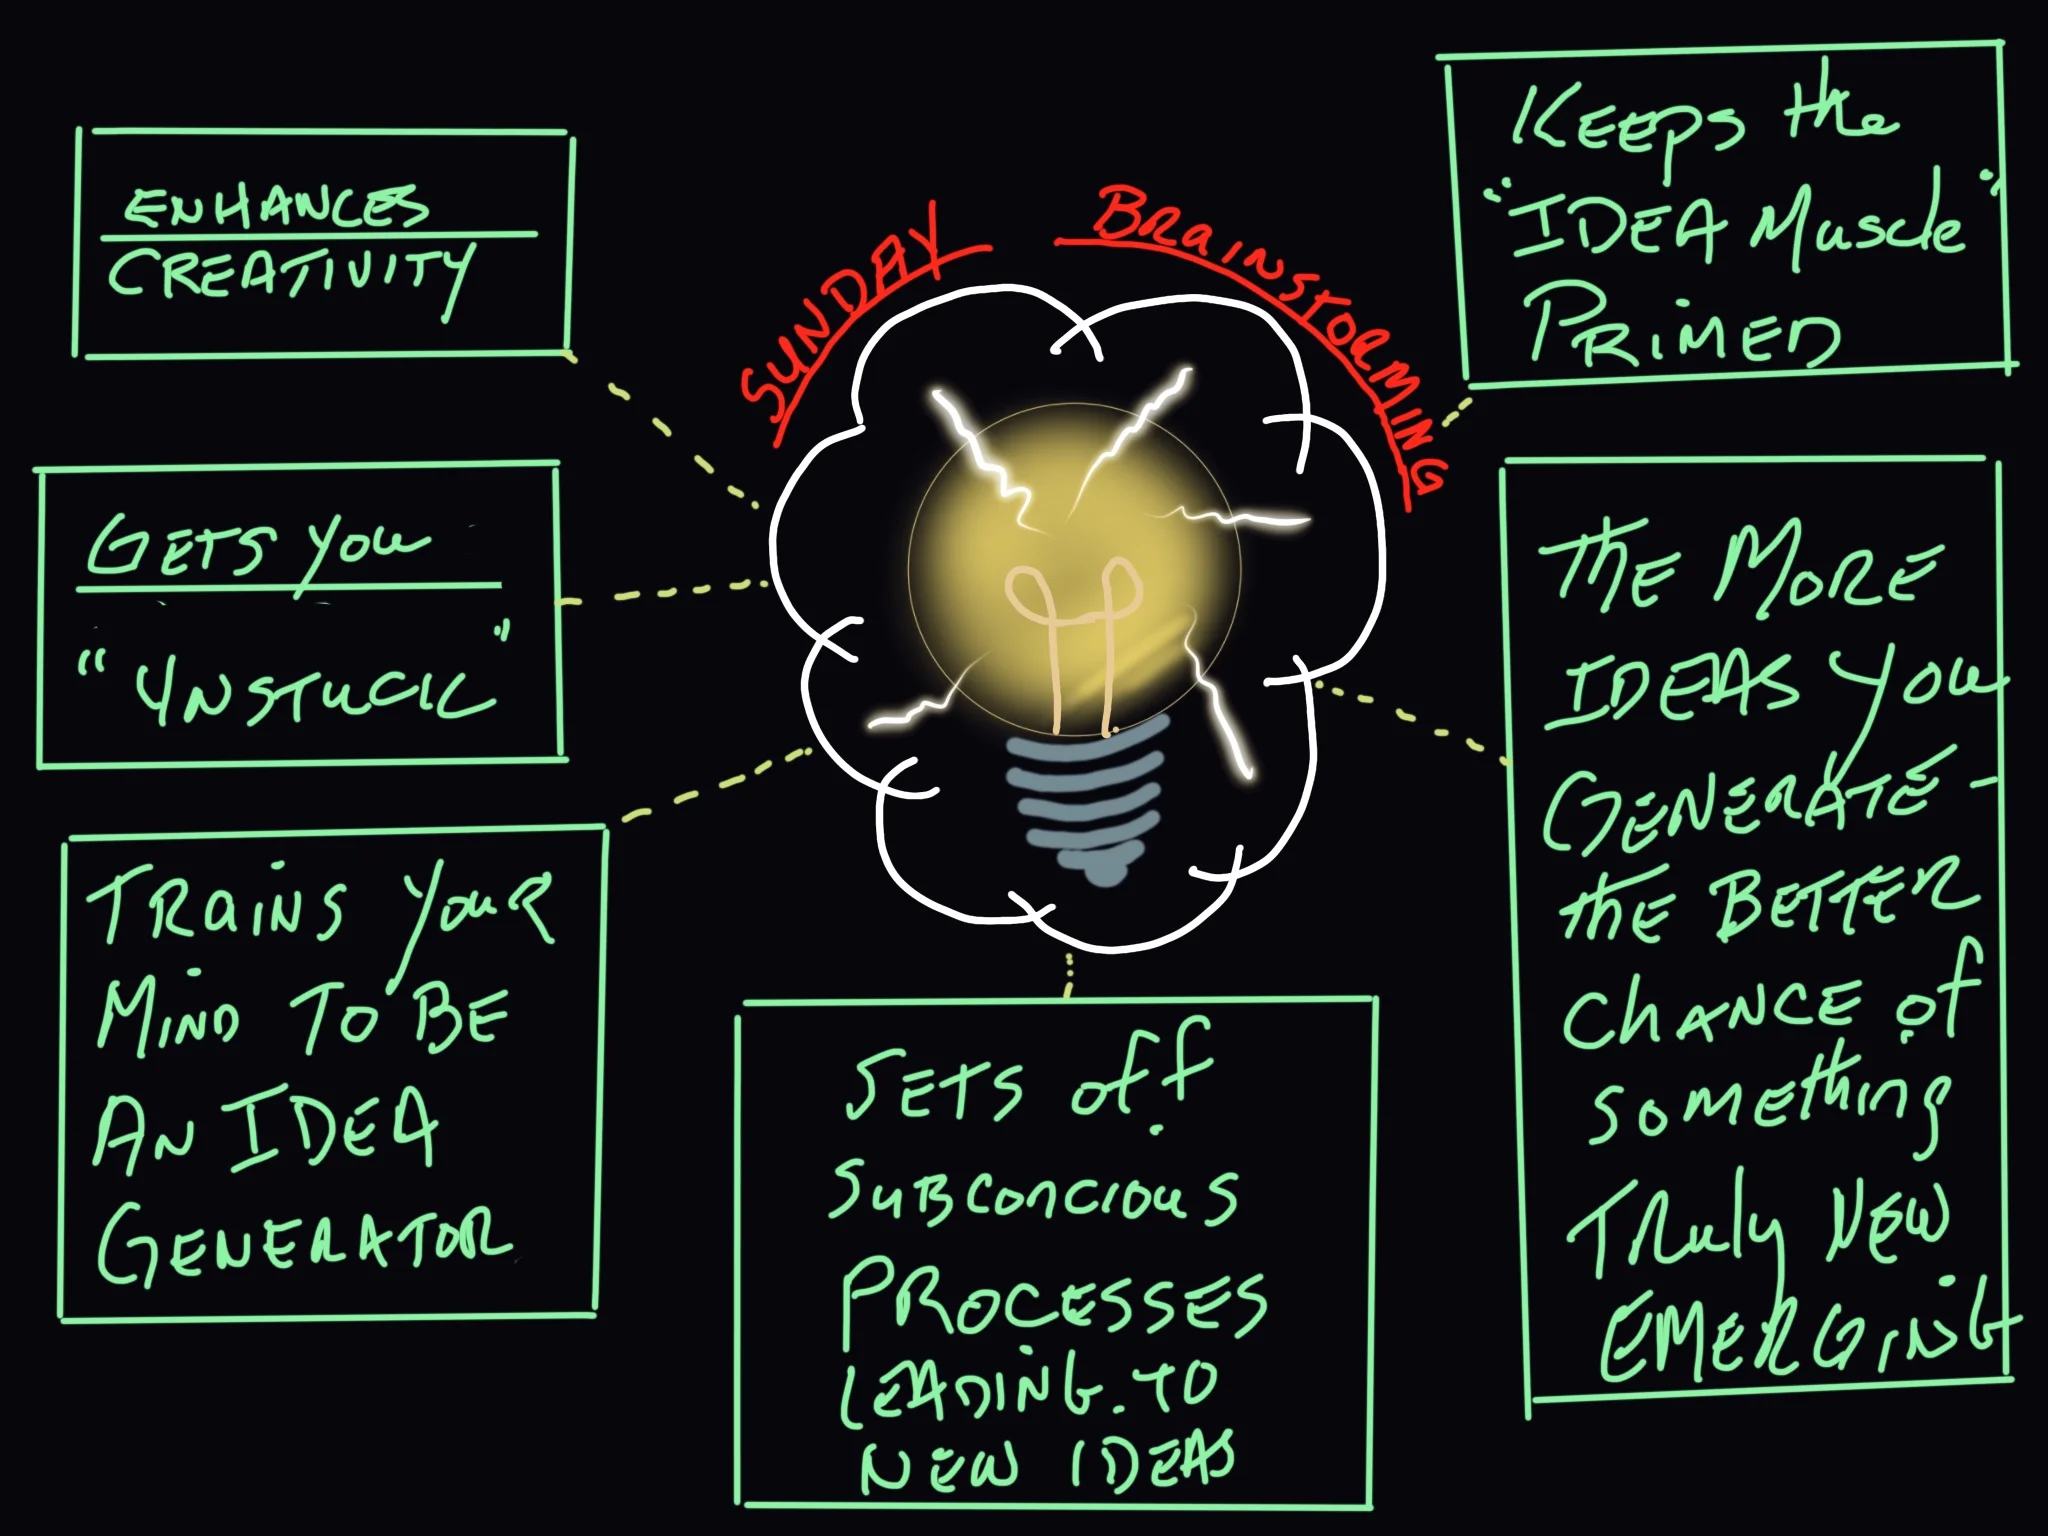 SUNDAY BRAINSTORMING
ENHANCES
CREATIVITY
GETS YOU
"UNSTUCK"
TRAINS YOUR
MIND TO BE
AN IDEA
GENERATOR
SETS off
SUBCONCIOUS
PROCESSES
LEADING TO
NEW IDEAS
KEEPS the
"IDEA Muscle"
PRIMED
The MORE
IDEAS YOU
GENERATE -
the BETTER
CHANCE of
something
TRuly NEW
EMERGING